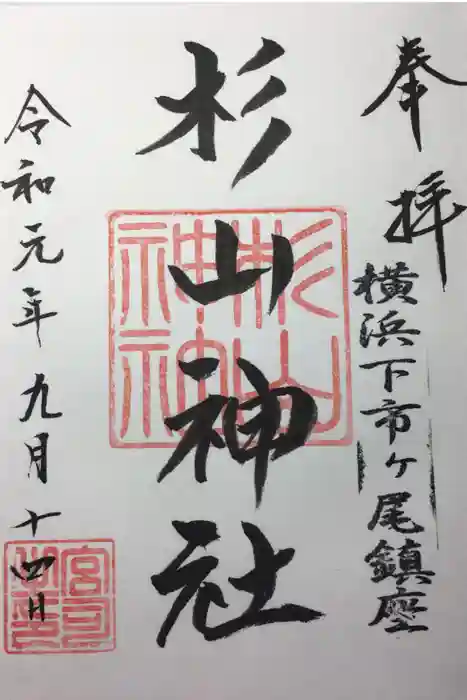 奉拝
横浜下市ヶ尾鎮座
杉山神社
杉山神社
令和元年九月十四日